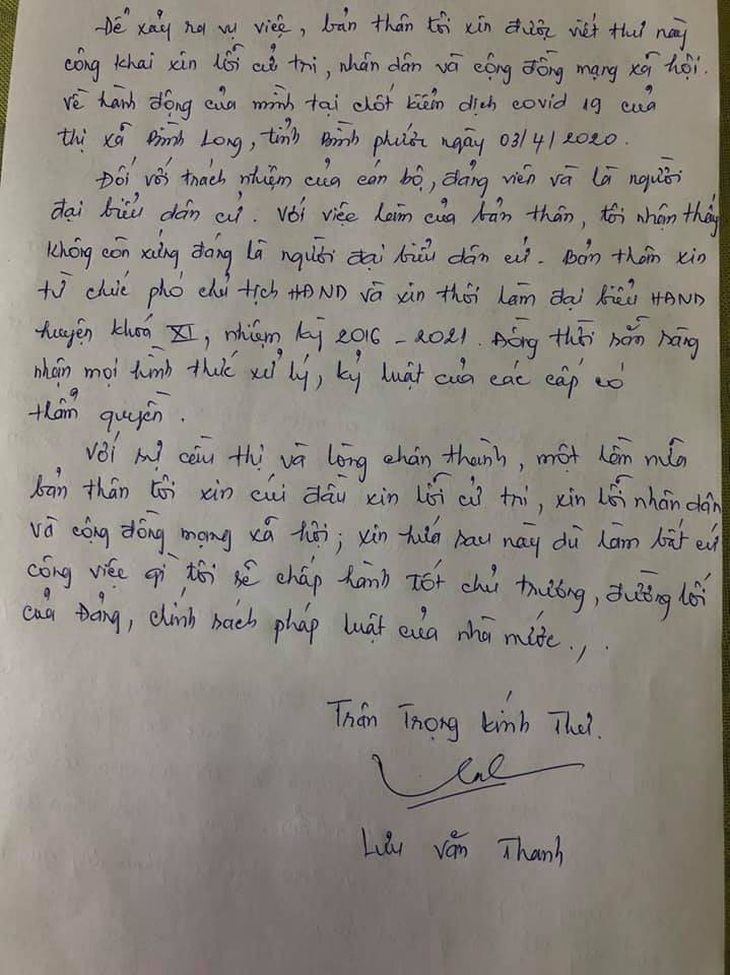 Để xảy ra vụ việc, bản thân tôi xin được viết thư này
công khai xin lỗi cử tri, nhân dân và cộng đồng mạng xã hội.
về hành động của mình tại chốt kiểm dịch covid 19 của
thị xã Bình Long, tỉnh Bình phước ngày 03/4/2020.
Đối với trách nhiệm của cán bộ, đảng viên và là người
đại biểu dân cử. Với việc làm của bản thân, tôi nhận thấy
không còn xứng đáng là người đại biểu dân cử. Bản thân xin
từ chức phó chủ tịch HĐND và xin thôi làm đại biểu HĐND
huyện khoá XI, nhiệm kỳ 2016 - 2021. Đồng thời sẵn sàng
nhận mọi hình thức xử lý, kỷ luật của các cấp có
thẩm quyền.
Với sự cầu thị và lòng chân thành, một lần nữa
bản thân tôi xin cúi đầu xin lỗi cử tri, xin lỗi nhân dân
và cộng đồng mạng xã hội; xin hứa sau này dù làm bất cứ
công việc gì tôi sẽ chấp hành tốt chủ trương, đường lối
của Đảng, chính sách pháp luật của nhà nước./.
Trân Trọng kính Thư.
Lưu Văn Thanh